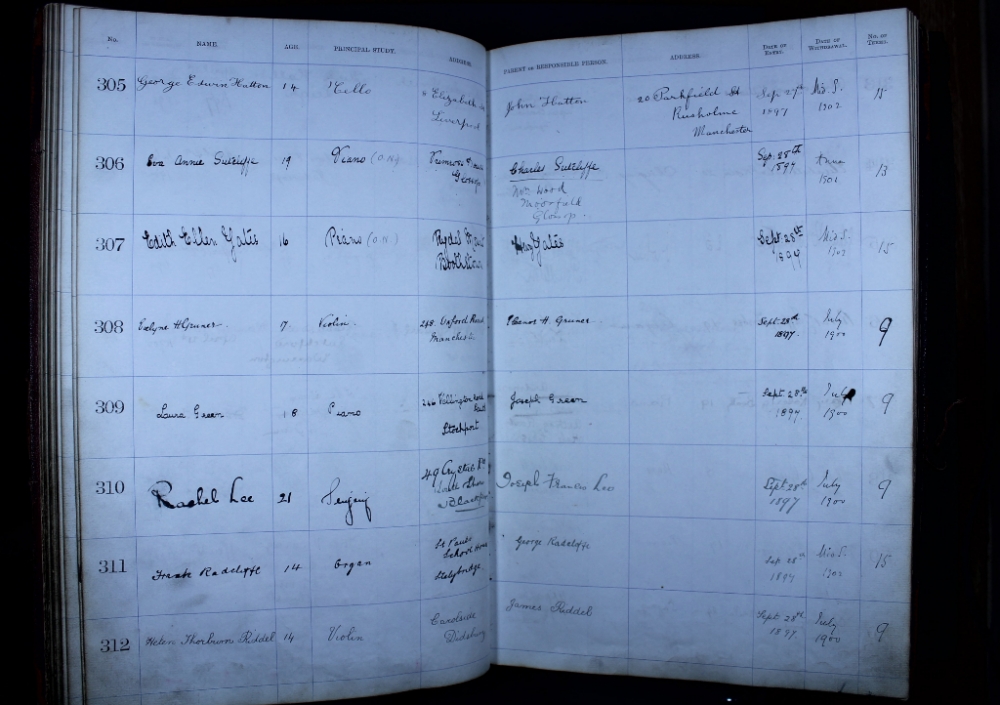 No. NAME. AGE. PRINCIPAL STUDY. ADDRESS. PARENT OR RESPONSIBLE PERSON. ADDRESS. DATE OF ENTRY. DATE OF WITHDRAWAL. No. OF TERMS.
305 George Edwin Hutton 14 'Cello Elizabeth John Hutton 20 Parkfield St Sep 27th Mid S. 15
Liverpool Rusholme 1897 1902
Manchester
306 Eva Annie Sutcliffe 19 Piano (O.K.) Charles Sutcliffe Sep. 28th 13
Glossop Wood 1897 1901
Moorfield
Glossop.
307 Edith Ellen Yates 16 Piano (O.K.) Rydal Yates Sept 28th Mid S. 15
1902
308 Evelyne H Gruner. 17 Violin. 248 Oxford Road Eleanor H. Gruner. Sept 28th July 9
Manchest. 1897 1900
309 Laura Green 18 Piano Wellington Road Joseph Green Sept 28th July 9
Stockport 1897 1900
310 Rachel Lee 21 Singing 49 Joseph Francis Lee Sept 28th July 9
South Shore 1897 1900
Blackpool
311 Frank Radcliffe 14 Organ St Pauls George Radcliffe Sep 28th Mid S. 15
School House 1897 1902
Stalybridge.
312 Helen Thorburn Riddel 14 Violin Didsbury James Riddel Sept 28th July 9
1897 1900